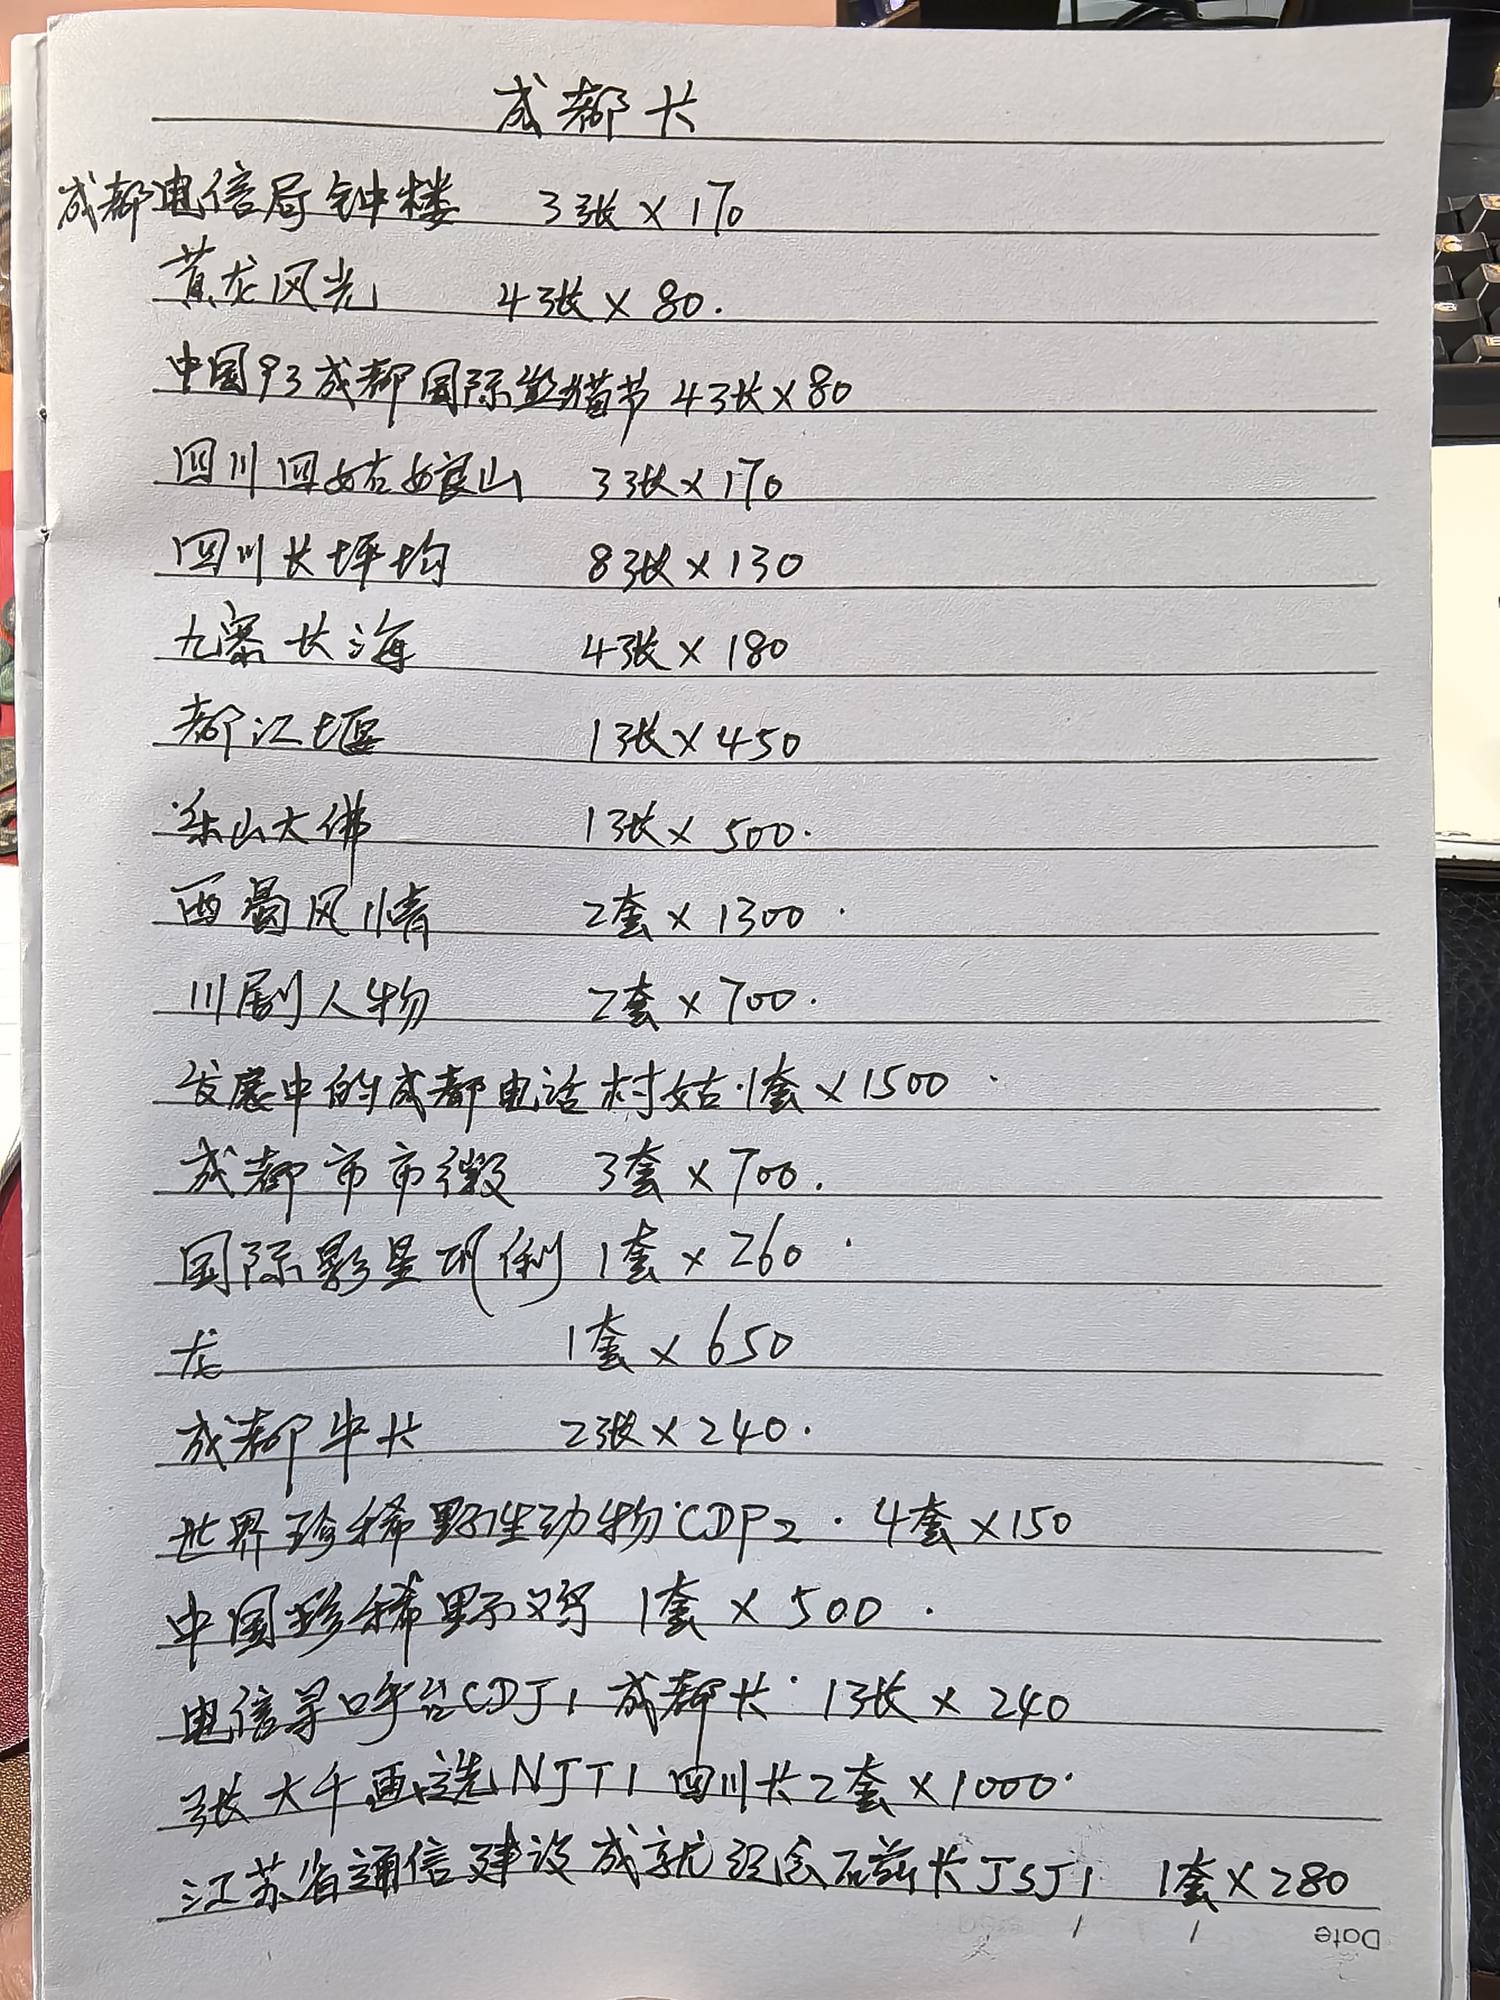 成都卡
成都电信局钟楼 3张×170
黄龙风光 4张×80.
中国93成都国际熊猫节 4张×80
四川四姑娘山 3张×170
四川长坪沟 8张×130
九寨长海 4张×180
都江堰 1张×450
乐山大佛 1张×500.
西蜀风情 2套×1300.
川剧人物 2套×700.
发展中的成都电话村姑.1套×1500.
成都市市徽 3套×700.
国际影星巩俐 1套×260.
龙 1套×650
成都牛卡 2张×240.
世界珍稀野生动物CDP2.4套×150
中国珍稀野鸡 1套×500.
电信寻呼台CDJ1 成都卡.1张×240
张大千画选NJT1 四川卡2套×1000.
江苏省通信建设成就纪念磁卡JSJ1 1套×280
Date